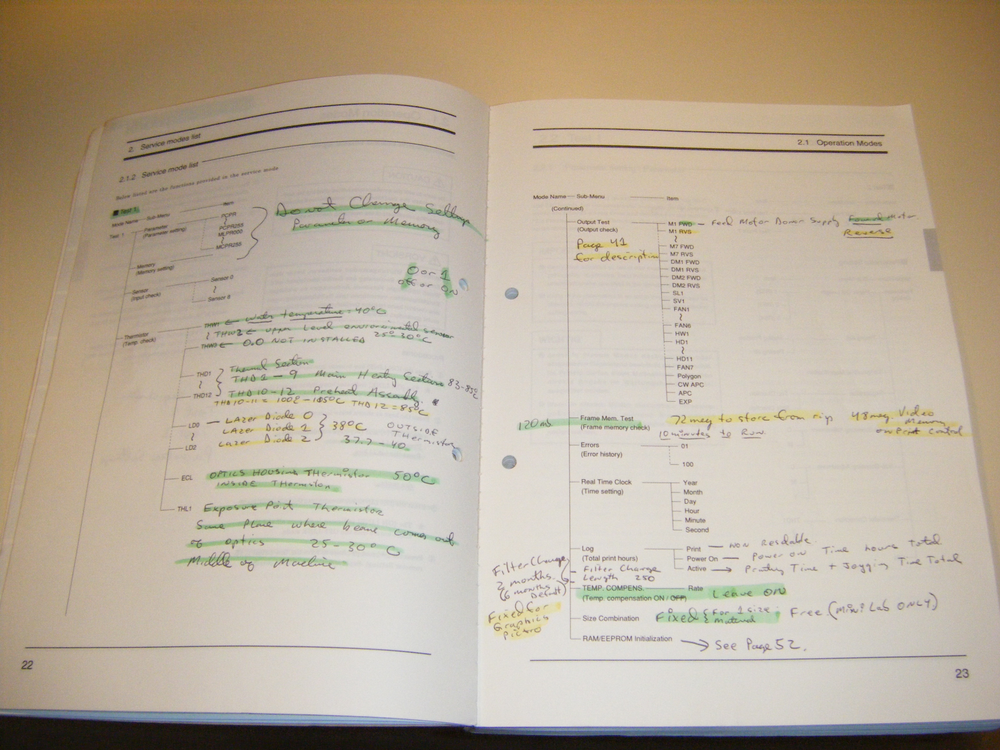 2. Service modes list
2.1.2 Service mode list
Below listed are the functions provided in the service mode
■ Test 1
Mode Name Sub-Menu Item
Test 1 Parameter PCPR
(Parameter setting) PCPR255
MCPR255
Memory
(Memory setting)
Do not Change Settings
Parameter or Memory
Sensor Sensor 0
(Input check)
Sensor 8
0 or 1
off or on
Thermistor THW1 ← Water temperature 40°C
(Temp. check) THW2 ← upper level environmental sensor
← 0.0 NOT INSTALLED 25-30°C
THD1 Thermal Section
THD 1 - 9 Main Heating Section 83-85°C
THD12 THD 10-12 Preheat Assembly
THD 10-11 = 100°C - 105°C THD 12 = 85°C
LD0 LAzer Diode 0
LAzer Diode 1 38°C OUTSIDE
Lazer Diode 2 37.7-40 THermistor
LD2
ECL OPTICS HOUSING THermistor 50°C
INSIDE THermistor
THL1 Exposure Point Thermistor
Same Plane where beam comes out
of optics 25-30°C
Middle of Machine
22
2.1 Operation Modes
Mode Name Sub-Menu Item
(Continued)
Output Test M1 FWD - Feed Motor Donor Supply Forward Motor
(Output check) M1 RVS Reverse
Page 41
for description
M7 FWD
M7 RVS
DM1 FWD
DM1 RVS
DM2 FWD
DM2 RVS
SL1
SV1
FAN1
FAN6
HW1
HD1
HD11
FAN7
Polygon
CW APC
APC
EXP
120mb Frame Mem. Test 72 meg to store from rip 48 meg. Video
(Frame memory check) 10 minutes to Run Memory
on Print Control
Errors 01
(Error history)
100
Real Time Clock Year
(Time setting) Month
Day
Hour
Minute
Second
Log Print - NON Resetable
(Total print hours) Power On - Power on Time hours Total
Active → Printing Time + Jogging Time Total
Filter Change
Length 250
Filter Change
2 months
(6 months
Default)
TEMP. COMPENS. Rate Leave ON
(Temp. compensation ON / OFF)
Size Combination Fixed { For 1 size & Material Free (Mini Lab ONLY)
Fixed for
Graphics
Pictro
RAM/EEPROM Initialization → See Page 52.
23